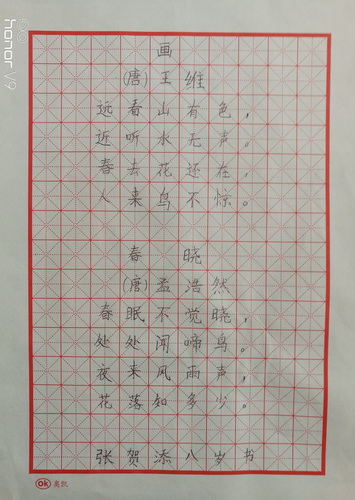 画
（唐）王维
远看山有色，
近听水无声。
春去花还在，
人来鸟不惊。
春晓
（唐）孟浩然
春眠不觉晓，
处处闻啼鸟。
夜来风雨声，
花落知多少。
张贺添八岁书
OK 奥凯
honor V9